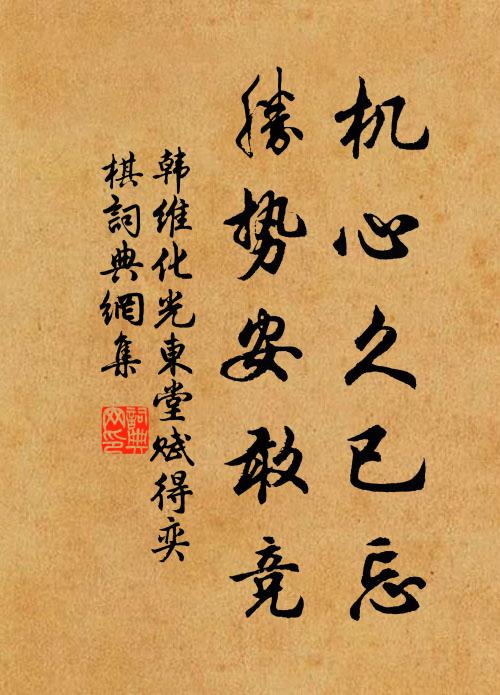 机心久已忘
勝势安敢竞
韩维化光東堂赋得奕
棋詞典網集
詞典
网印